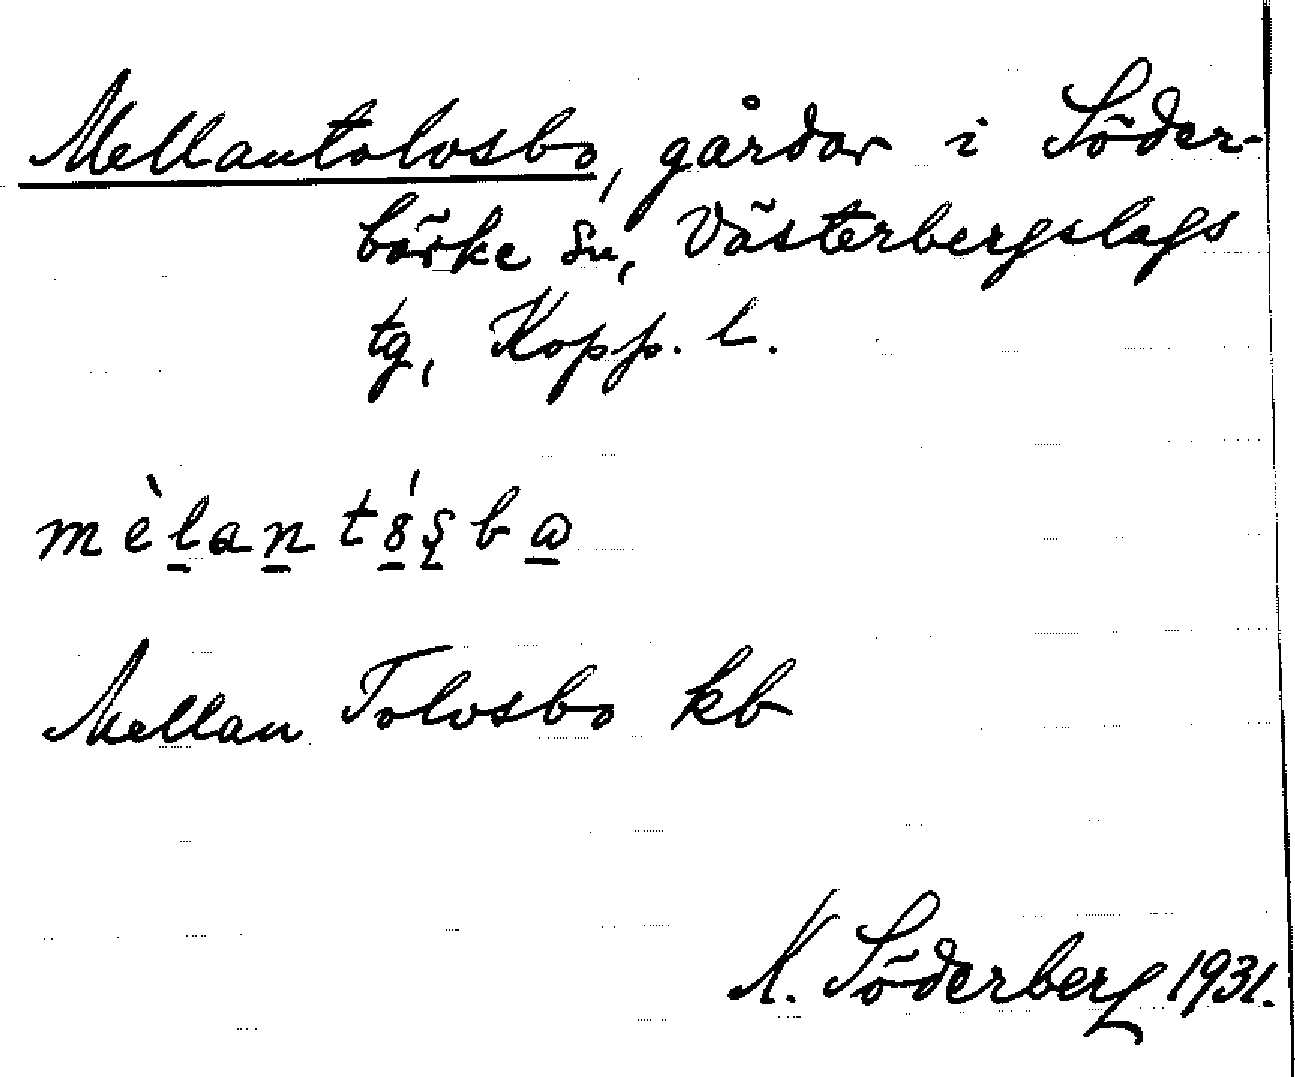 Mellantolvsbo, gårdar i Söder-
bärke sn, Västerbergslags
tg, Kopp. l.
Mellan Tolvsbo kb
K. Söderberg 1931.